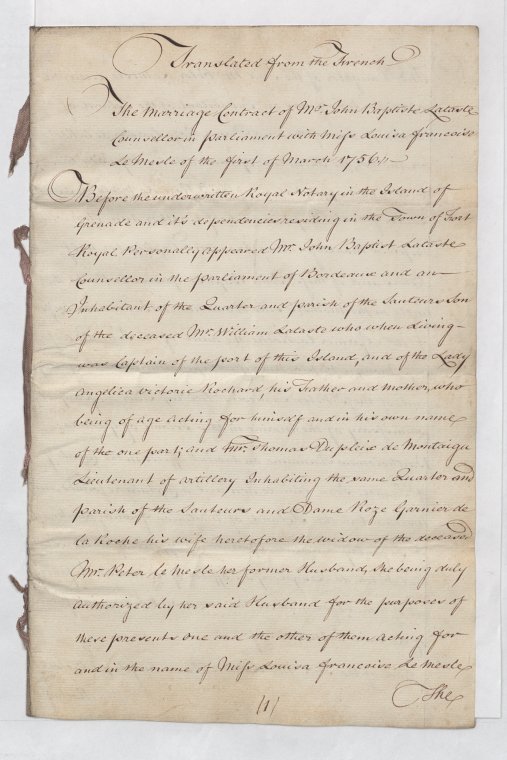 Translated from the French
The Marriage Contract of Mr. John Baptiste Lataste
Counsellor in parliament with Miss Louisa francoise
Le Mesle of the first of March 1756 //
Before the underwritten Royal Notary in the Island of
Grenade and it's dependencies residing in the Town of Fort
Royal Personally appeared Mr. John Baptist Lataste
Counsellor in the parliament of Bordeaux and an
Inhabitant of the Quarter and parish of the Sauteurs Son
of the deceased Mr. William Lataste who when living
was Captain of the port of this Island, and of the Lady
Angelica Victoire Rochard, his Father and Mother, who
being of age acting for himself and in his own name
of the one part; and Mr. Thomas Dupleix de Montaigu
Lieutenant of artillery Inhabiting the same Quarter and
parish of the Sauteurs and Dame Roze Garnier de
la Roche his wife heretofore the widow of the deceased
Mr. Peter le Mesle her former Husband, she being duly
authorized by her said Husband for the purposes of
these presents one and the other of them acting for
and in the name of Miss Louisa francoise Le Mesle
The
/1/